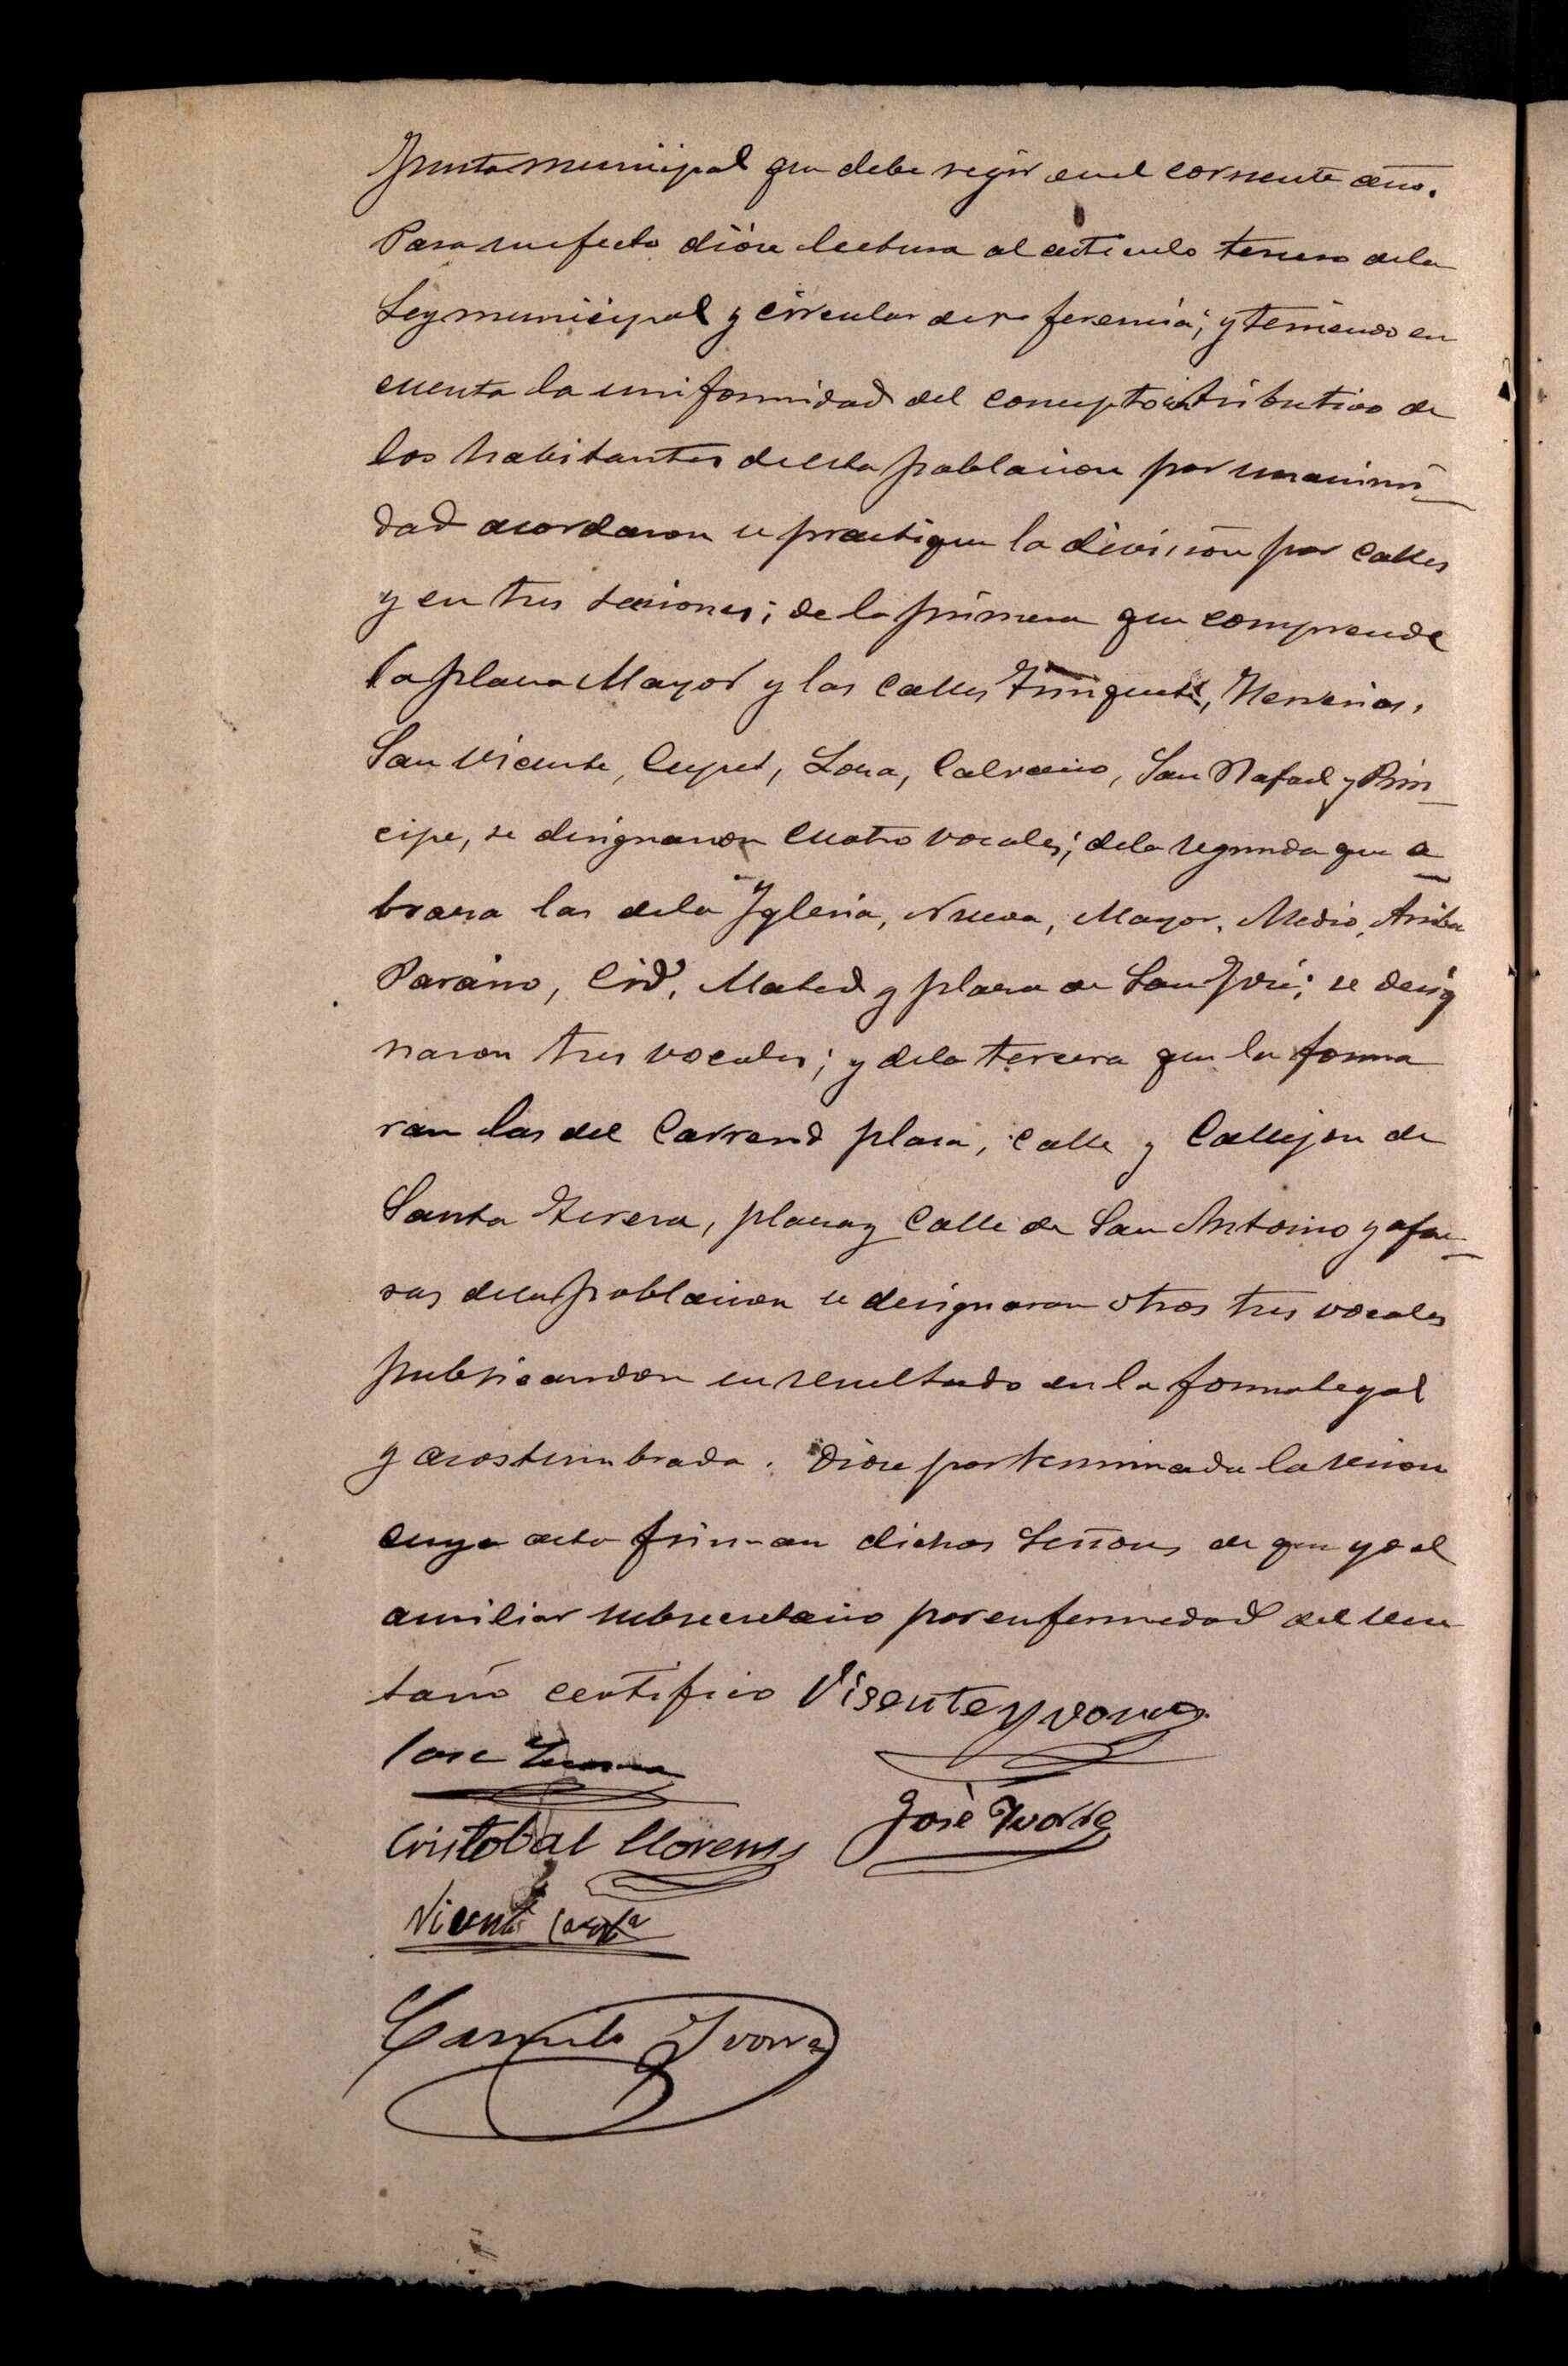 Junta municipal que debe regir en el corriente año.
Para su efecto dióse lectura al articulo tercero de la
Ley municipal y circular de referencia; y teniendo en
cuenta la uniformidad del concepto contributivo de
los habitantes de esta poblacion por unanimi-
dad acordaron se practique la división por calles
y en tres secciones; de la primera que comprende
la plaza Mayor y las calles Trinquete, Herrerias,
San Vicente, Lora, Calvario, San Rafael y Prin-
cipe, se designaron cuatro vocales; de la segunda que a-
braza las de la Yglesia, Nueva, Mayor, Medio, Arriba
Paraiso, Cid, y plaza de San José; se desig
naron tres vocales; y de la tercera que la forma
ran las del Carreró plaza, calle y Callejon de
Santa Teresa, plaza y calle de San Antonio y afue-
ras de la poblacion se designaron otros tres vocales
publicandose su resultado en la forma legal
y acostumbrada. Dióse por terminada la sesion
cuya acta firman dichos Señores de que yo el
auxiliar subsecretario por enfermedad del secre
tario certifico Visente Yvorra
Jose
José Yvorra
Cristobal Llorens
Vicente
Camilo Yvorra